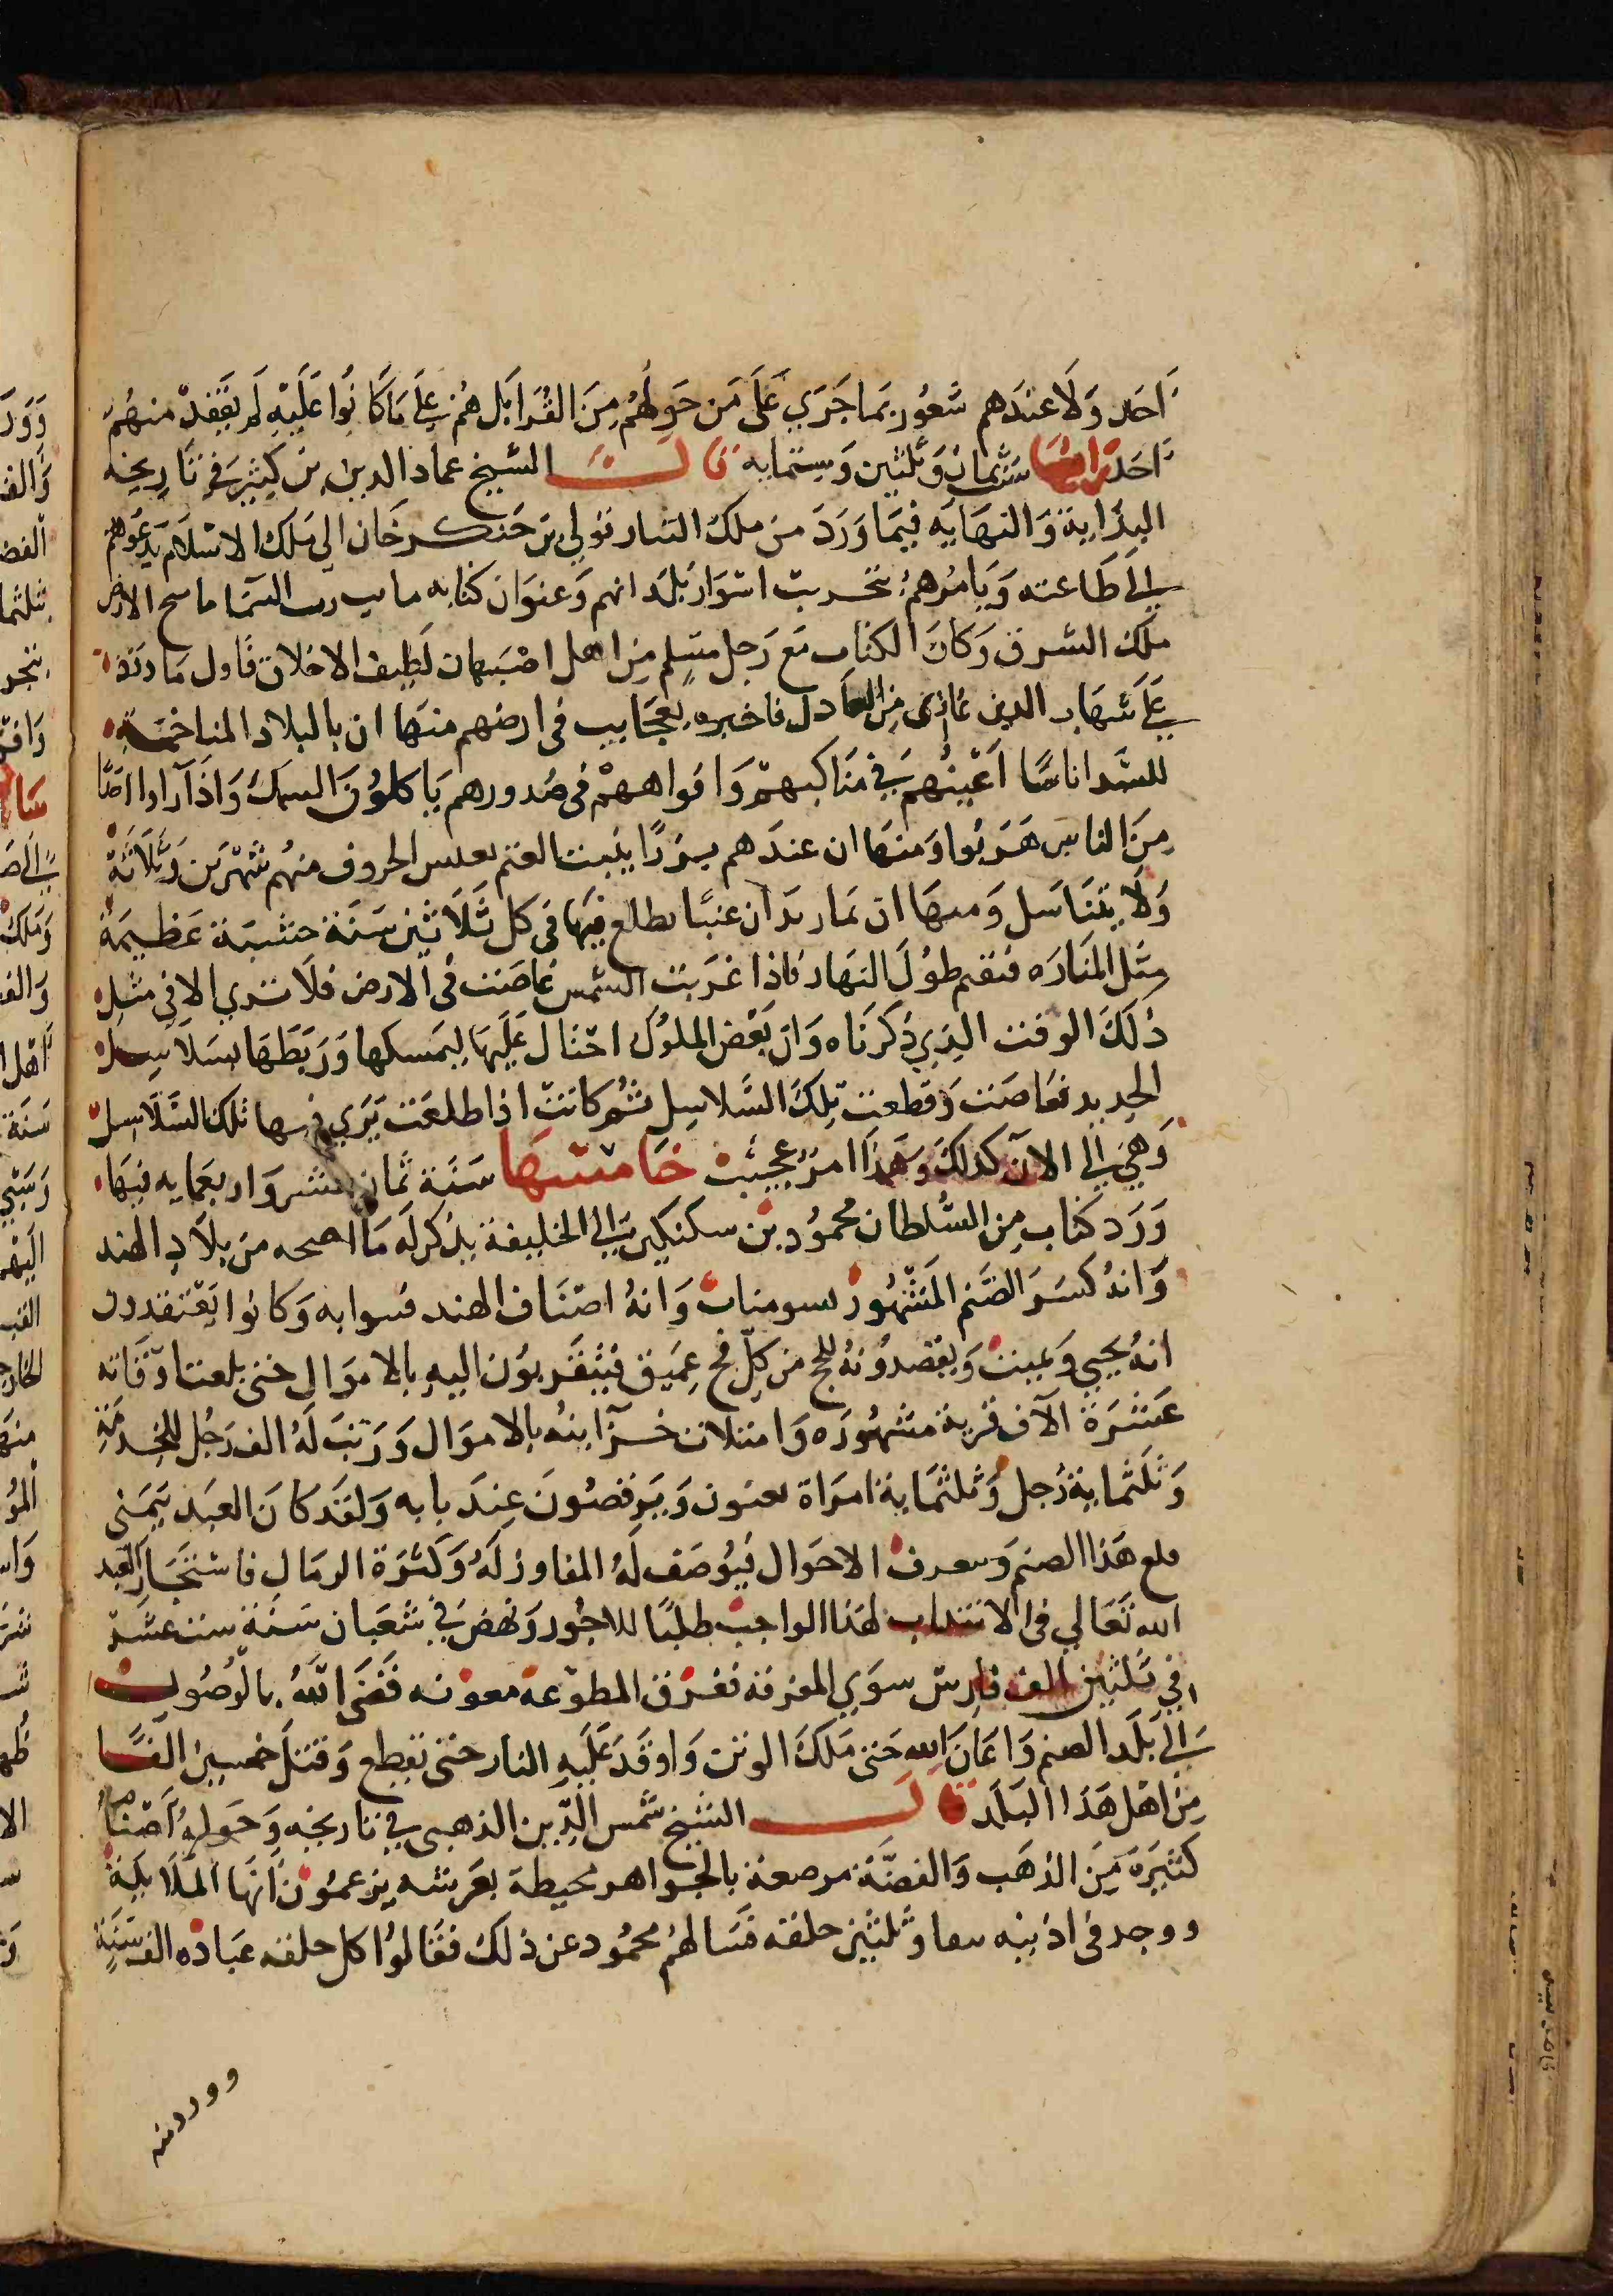 احد ولا عندهم شعور بما جري على من حولهم من القرا بل هم على ما كانوا عليه لم يفقد منهم
احد رابعها سنة ثمان وثلثين وستمايه قالت الشيخ عماد الدين بن كثير في تاريخه
البداية والنهايه فيما ورد من ملك التتار تولي بن جنكرخان الي ملك الاسلام يدعوهم
الى طاعته ويامرهم بتخريب اسوار بلدانهم وعنوان كتابه نايب رب السما ماسح الارض
ملك الشرق وكان الكتاب مع رجل مسلم من اهل اصبهان لطيف الاخلاق فاول ما
على شهاب الدين غازى بن العادل فاخبره بعجايب فى ارضهم منها ان بالبلاد المتاخمة
للسد اناسا اعينهم في مناكبهم وافواههم فى صدورهم ياكلون السمك واذا راوا احدا
من الناس هربوا ومنها ان عندهم بزرا ينبت الغنم يعيش الخروف منهم شهرين وثلاثة
ولا يتناسل ومنها ان بمازندران عينا يطلع فيها فى كل ثلاثين سنة خشبة عظيمة
مثل المناره فتقيم طول النهار فاذا غربت الشمس غاصت فى الارض فلا تري الا في مثل
ذلك الوقت الذي ذكرناه وان بعض الملوك احتال عليها ليمسكها وربطها بسلاسل
الحديد فغاصت وقطعت تلك السلاسل ثم كانت اذا طلعت يري فيها تلك السلاسل
وهي الي الان كذلك وهذا امر عجيب خامستها سنة ثمان عشر واربعمايه فيها
ورد كتاب من السلطان محمود بن سبكتكين الي الخليفة يذكر له ما افتتحه من بلاد الهند
وانه كسر الصنم المشهور بسومنات وانه اصناف الهند فتنوا به وكانوا يعتقدون
انه يحيي ويميت ويقصدونه للحج من كل فج عميق فيتقربون اليه بالاموال حتى بلغت اوقافه
عشرة آلاف قرية مشهوره وامتلات خزآينه بالاموال ورتب له الف رجل للخدمة
وثلثماية رجل وثلثماية امراة يغنون ويرقصون عند بابه ولقد كان العبد يتمنى
قلع هذا الصنم ويتعرف الاحوال فيوصف له المفاوز له وكثرة الرمال فاستخار العبد
الله تعالي فى الانتداب لهذا الواجب طلبا للاجور ونهض في شعبان سنة ست عشر
في ثلثين الف فارس سوي المفرقة ففرق المطوعة معونه فقضى الله بالوصول
الي بلد الصنم واعان الله حتى ملك الوثن واوقد عليه النار حتى تقطع وقتل خمسين الفا
من اهل هذا البلد قال الشيخ شمس الدين الذهبى في تاريخه وحوله اصنام
كثيرة من الذهب والفضة مرصعة بالجواهر محيطة بعرشه يزعمون انها الملايكة
ووجد فى اذنيه نيفا وثلثين حلقه فسالهم محمود عن ذلك فقالوا كل حلقه عباده الف سنة
ووردت